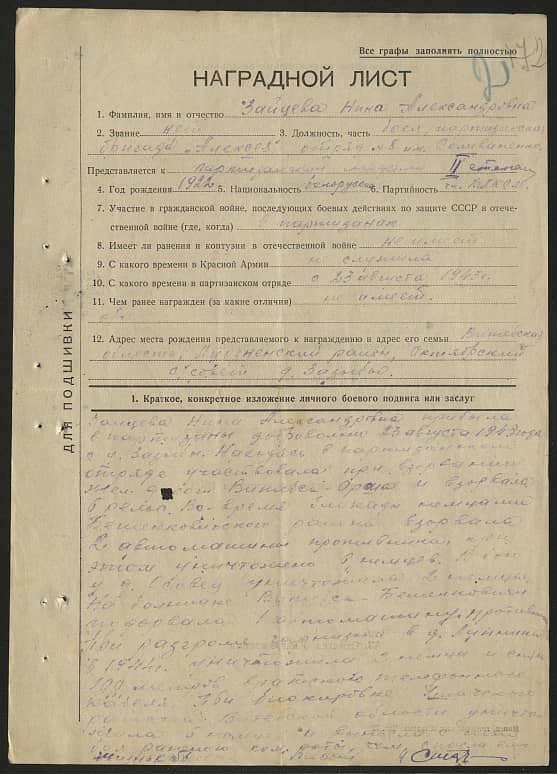 Все графы заполнять полностью
172
НАГРАДНОЙ ЛИСТ
1. Фамилия, имя и отчество Зайцева Нина Александровна
2. Звание нет 3. Должность, часть боец, партизанск.
бригада „Алексея" отряд №8 им. Селиваненко
Представляется к партизанской медали II степени
4. Год рождения 1922 5. Национальность белоруска 6. Партийность чл. ВЛКСМ
7. Участие в гражданской войне, последующих боевых действиях по защите СССР и отече-
ственной войне (где, когда) В партизанах
8. Имеет ли ранения и контузии в отечественной войне не имеет
9. С какого времени в Красной Армии не служила
10. С какого времени в партизанском отряде с 23 августа 1943 г.
11. Чем ранее награжден (за какие отличия) не имеет.
12. Адрес места рождения представляемого к награждению и адрес его семьи Витебская
область, район, Октябрьский
с/совет д.
ДЛЯ ПОДШИВКИ
1. Краткое, конкретное изложение личного боевого подвига или заслуг
Зайцева Нина Александровна прибыла
в партизаны добровольно 23 августа 1943 года
с д. Находясь в партизанском
отряде участвовала при взрывании
жел. дороги Витебск-Орша и взорвала
рельс. Во время блокады немцами
Бешенковичского района взорвала
2 автомашины противника, при
этом уничтожено немцев. В бою
у д. уничтожила 2 немца.
На большаке Витебск-Бешенковичи
подорвала 1 автомашину противника
При разгроме гарнизона в д.
в 1944 г. уничтожила немца и сняла
100 метров вражеского телефонного
кабеля. При блокировке
района Витебской области уничто-
жила немца и вынесла с поля
боя раненого ком. роты, чем спасла ему